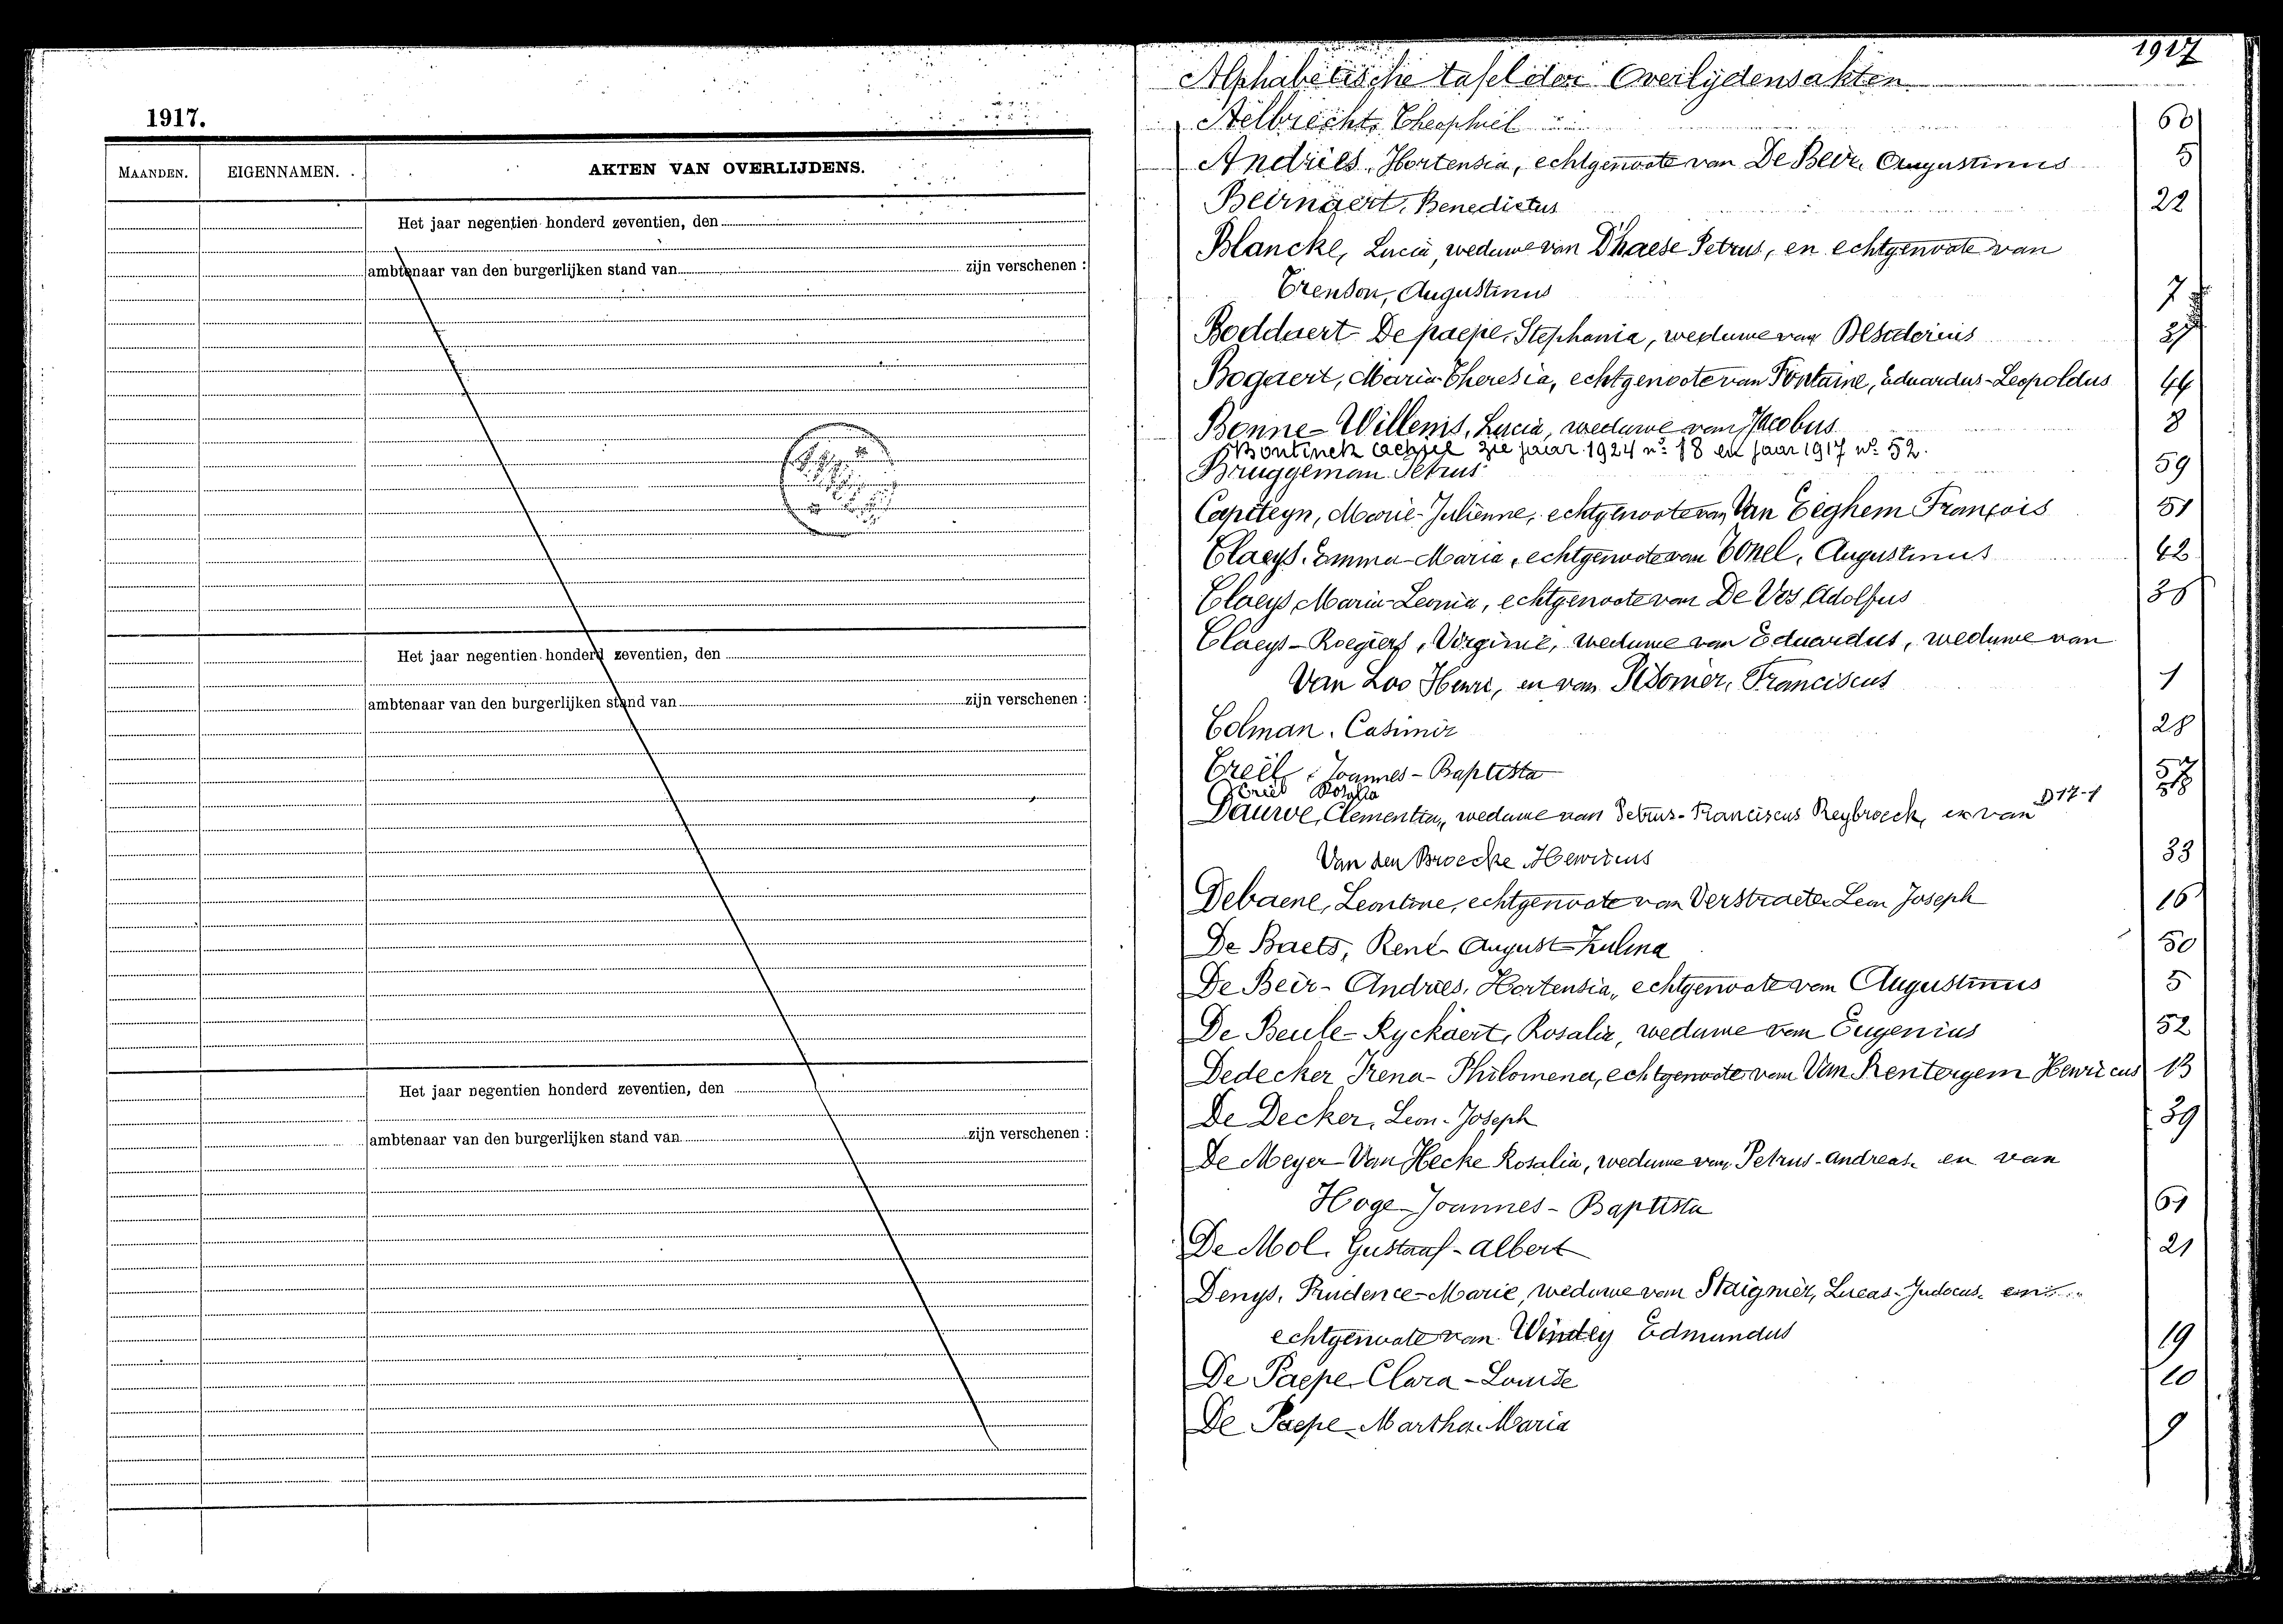 1917.
MAANDEN. EIGENNAMEN. AKTEN VAN OVERLIJDENS.
Het jaar negentien honderd zeventien, den
ambtenaar van den burgerlijken stand van zijn verschenen :
Het jaar negentien honderd zeventien, den
ambtenaar van den burgerlijken stand van zijn verschenen :
Het jaar negentien honderd zeventien, den
ambtenaar van den burgerlijken stand van zijn verschenen :
1917
Alphabetische tafel der Overlijdensakten
Aelbrecht, Theophiel 60
Andries, Hortensia, echtgenoote van De Beir, Augustinus 5
Beirnaert, Benedictus 22
Blancke, Lucia, weduwe van D'haese Petrus, en echtgenoote van
Crenson, Augustinus 7
Boddaert-De paepe, Stephania, weduwe van Desiderius 27
Bogaert, Maria-Theresia, echtgenoote van Fontaine, Eduardus-Leopoldus 44
Bonne-Willems, Lucia, weduwe van Jacobus 8
Bontinck Achiel zie jaar 1924 n° 18 en jaar 1917 n° 52.
Bruggeman Petrus 59
Capiteyn, Marie-Julienne, echtgenoote van Van Eeghem François 51
Claeys, Emma-Maria, echtgenoote van Tonel, Augustinus 42
Claeys, Maria-Leonia, echtgenoote van De Vos Adolfus 38
Claeys-Roegiers, Virginie, weduwe van Eduardus, weduwe van
Van Loo Henri, en van Franciscus 1
Colman, Casimir 28
Creël, Joannes-Baptista 57
Criel Rosalia D 17-1
Dauwe, Clementia, weduwe van Petrus-Franciscus Reybroeck, en van
Van den Broecke Henricus 33
Debaene, Leontine, echtgenoote van Verstraeten Leon Joseph 16
De Baets, René-August-Zulma 50
De Beir-Andries, Hortensia, echtgenoote van Augustinus 5
De Beule-Ryckaert, Rosalia, weduwe van Eugenius 52
Dedecker Irena-Philomena, echtgenoote van Van Rentergem Henricus 13
De Decker, Leon-Joseph 39
De Meyer-Van Hecke Rosalia, weduwe van Petrus-Andreas, en van
Hoge Joannes-Baptista 61
De Mol, Gustaaf-Albert 21
Denys, Prudence-Marie, weduwe van Staignier, Lucas-Judocus, en
echtgenoote van Windey Edmundus 19
De Paepe Clara-Louise 10
De Paepe Martha-Maria 9